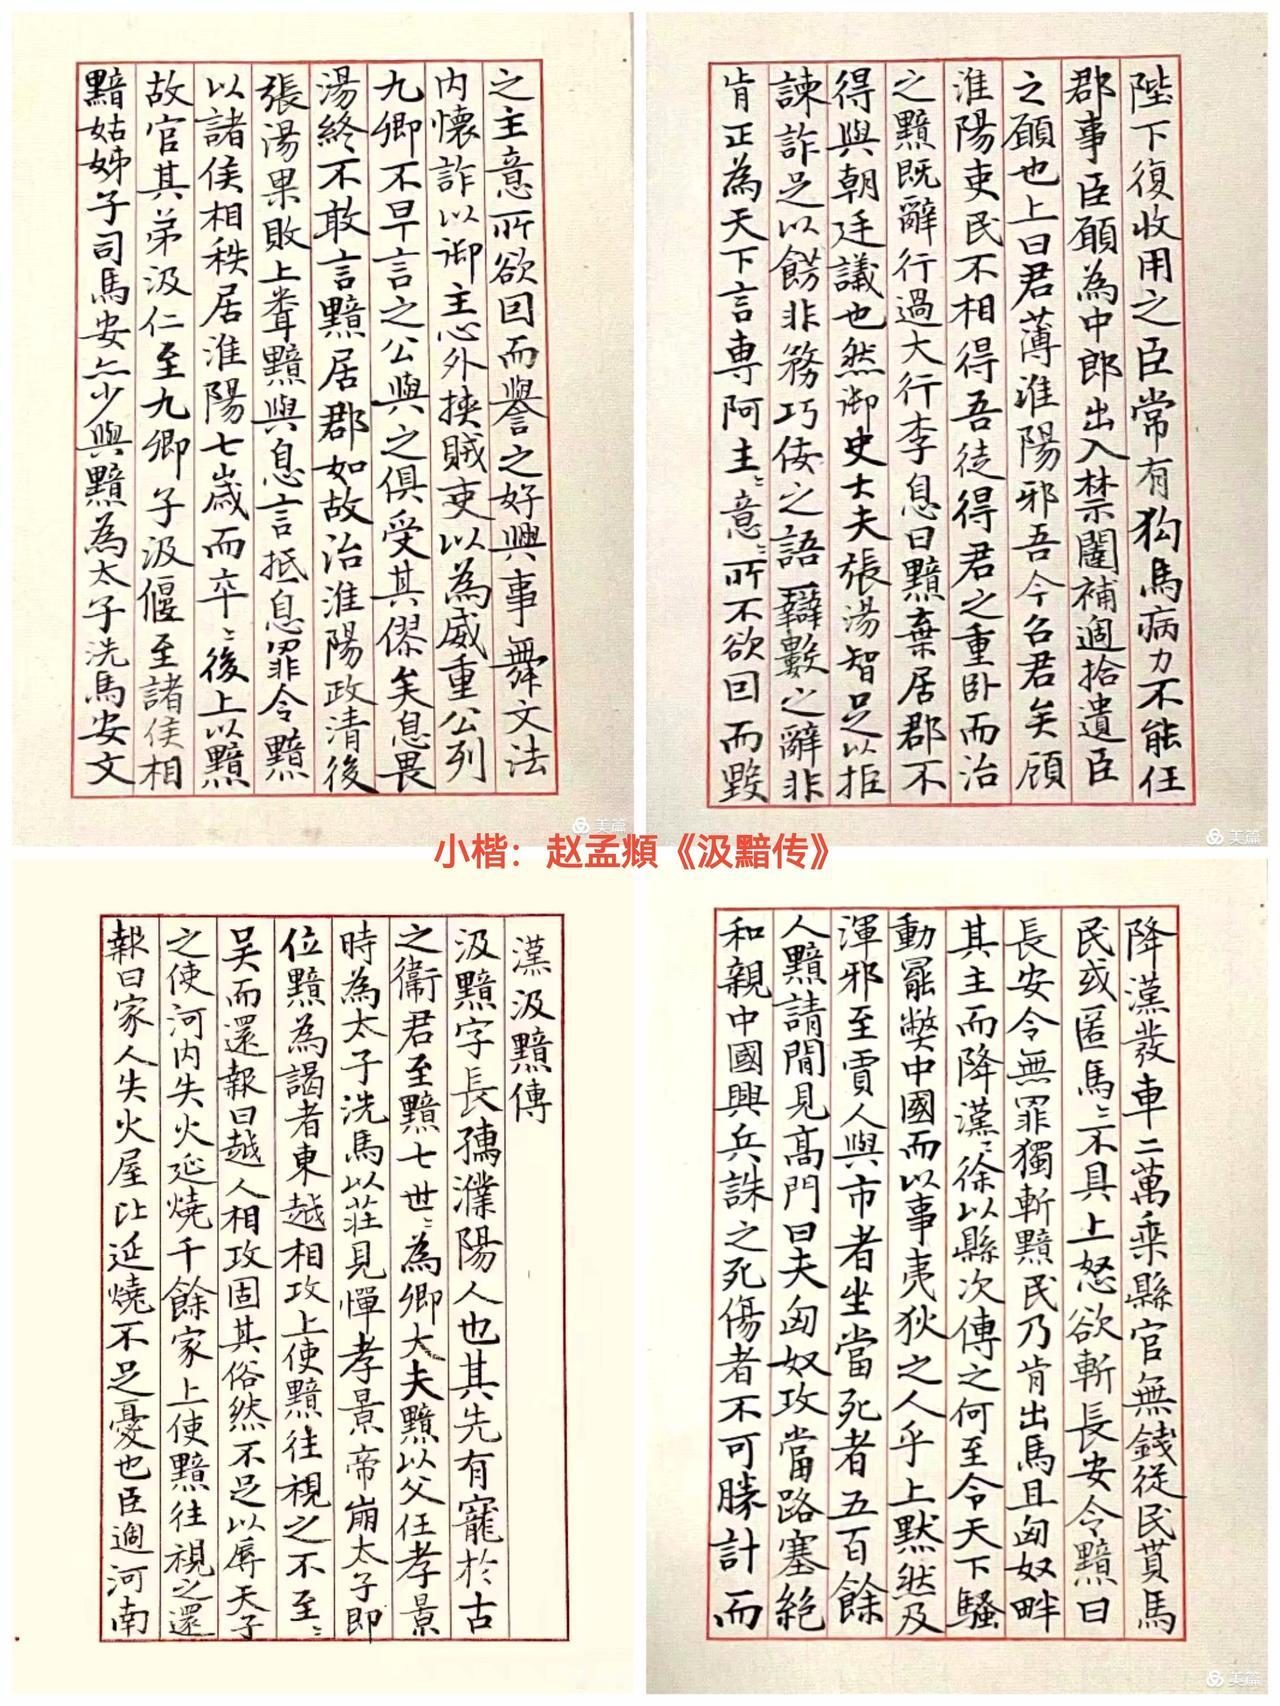 之主意所欲因而譽之好興事舞文法
内懷詐以御主心外挾賊吏以為威重公列
九卿不早言之公與之俱受其僇矣息畏
湯終不敢言黯居郡如故治淮陽政清後
張湯果敗上聋黯與息言抵息罪令黯
以諸侯相秩居淮陽七歲而卒〻後上以黯
故官其弟汲仁至九卿子汲偃至諸侯相
黯姑姊子司馬安亦少與黯為太子洗馬安文
陛下復收用之臣常有狗馬病力不能任
郡事臣願為中郎出入禁闥補過拾遺臣
之願也上曰君薄淮陽邪吾今召君矣顧
淮陽吏民不相得吾徒得君之重卧而治
之黯既辭行過大行李息曰黯棄居郡不
得與朝廷議也然御史大夫張湯智足以拒
諫詐足以餙非務巧佞之語辯數之辭非
肯正為天下言専阿主〻意〻所不欲因而毀
小楷：赵孟頫《汲黯传》
漢汲黯傳
汲黯字長孺濮陽人也其先有寵於古
之衞君至黯七世〻為卿大夫黯以父任孝景
時為太子洗馬以莊見憚孝景帝崩太子即
位黯為謁者東越相攻上使黯往視之不至〻
吴而還報曰越人相攻固其俗然不足以辱天子
之使河内失火延燒千餘家上使黯往視之還
報曰家人失火屋比延燒不足憂也臣過河南
降漢發車二萬乘縣官無錢從民貰馬
民或匿馬〻不具上怒欲斬長安令黯曰
長安令無罪獨斬黯民乃肯出馬且匈奴畔
其主而降漢〻徐以縣次傳之何至令天下騷
動罷獘中國而以事夷狄之人乎上默然及
渾邪至賈人與市者坐當死者五百餘
人黯請閒見高門曰夫匈奴攻當路塞絶
和親中國興兵誅之死傷者不可勝計而
美篇
美篇
美篇